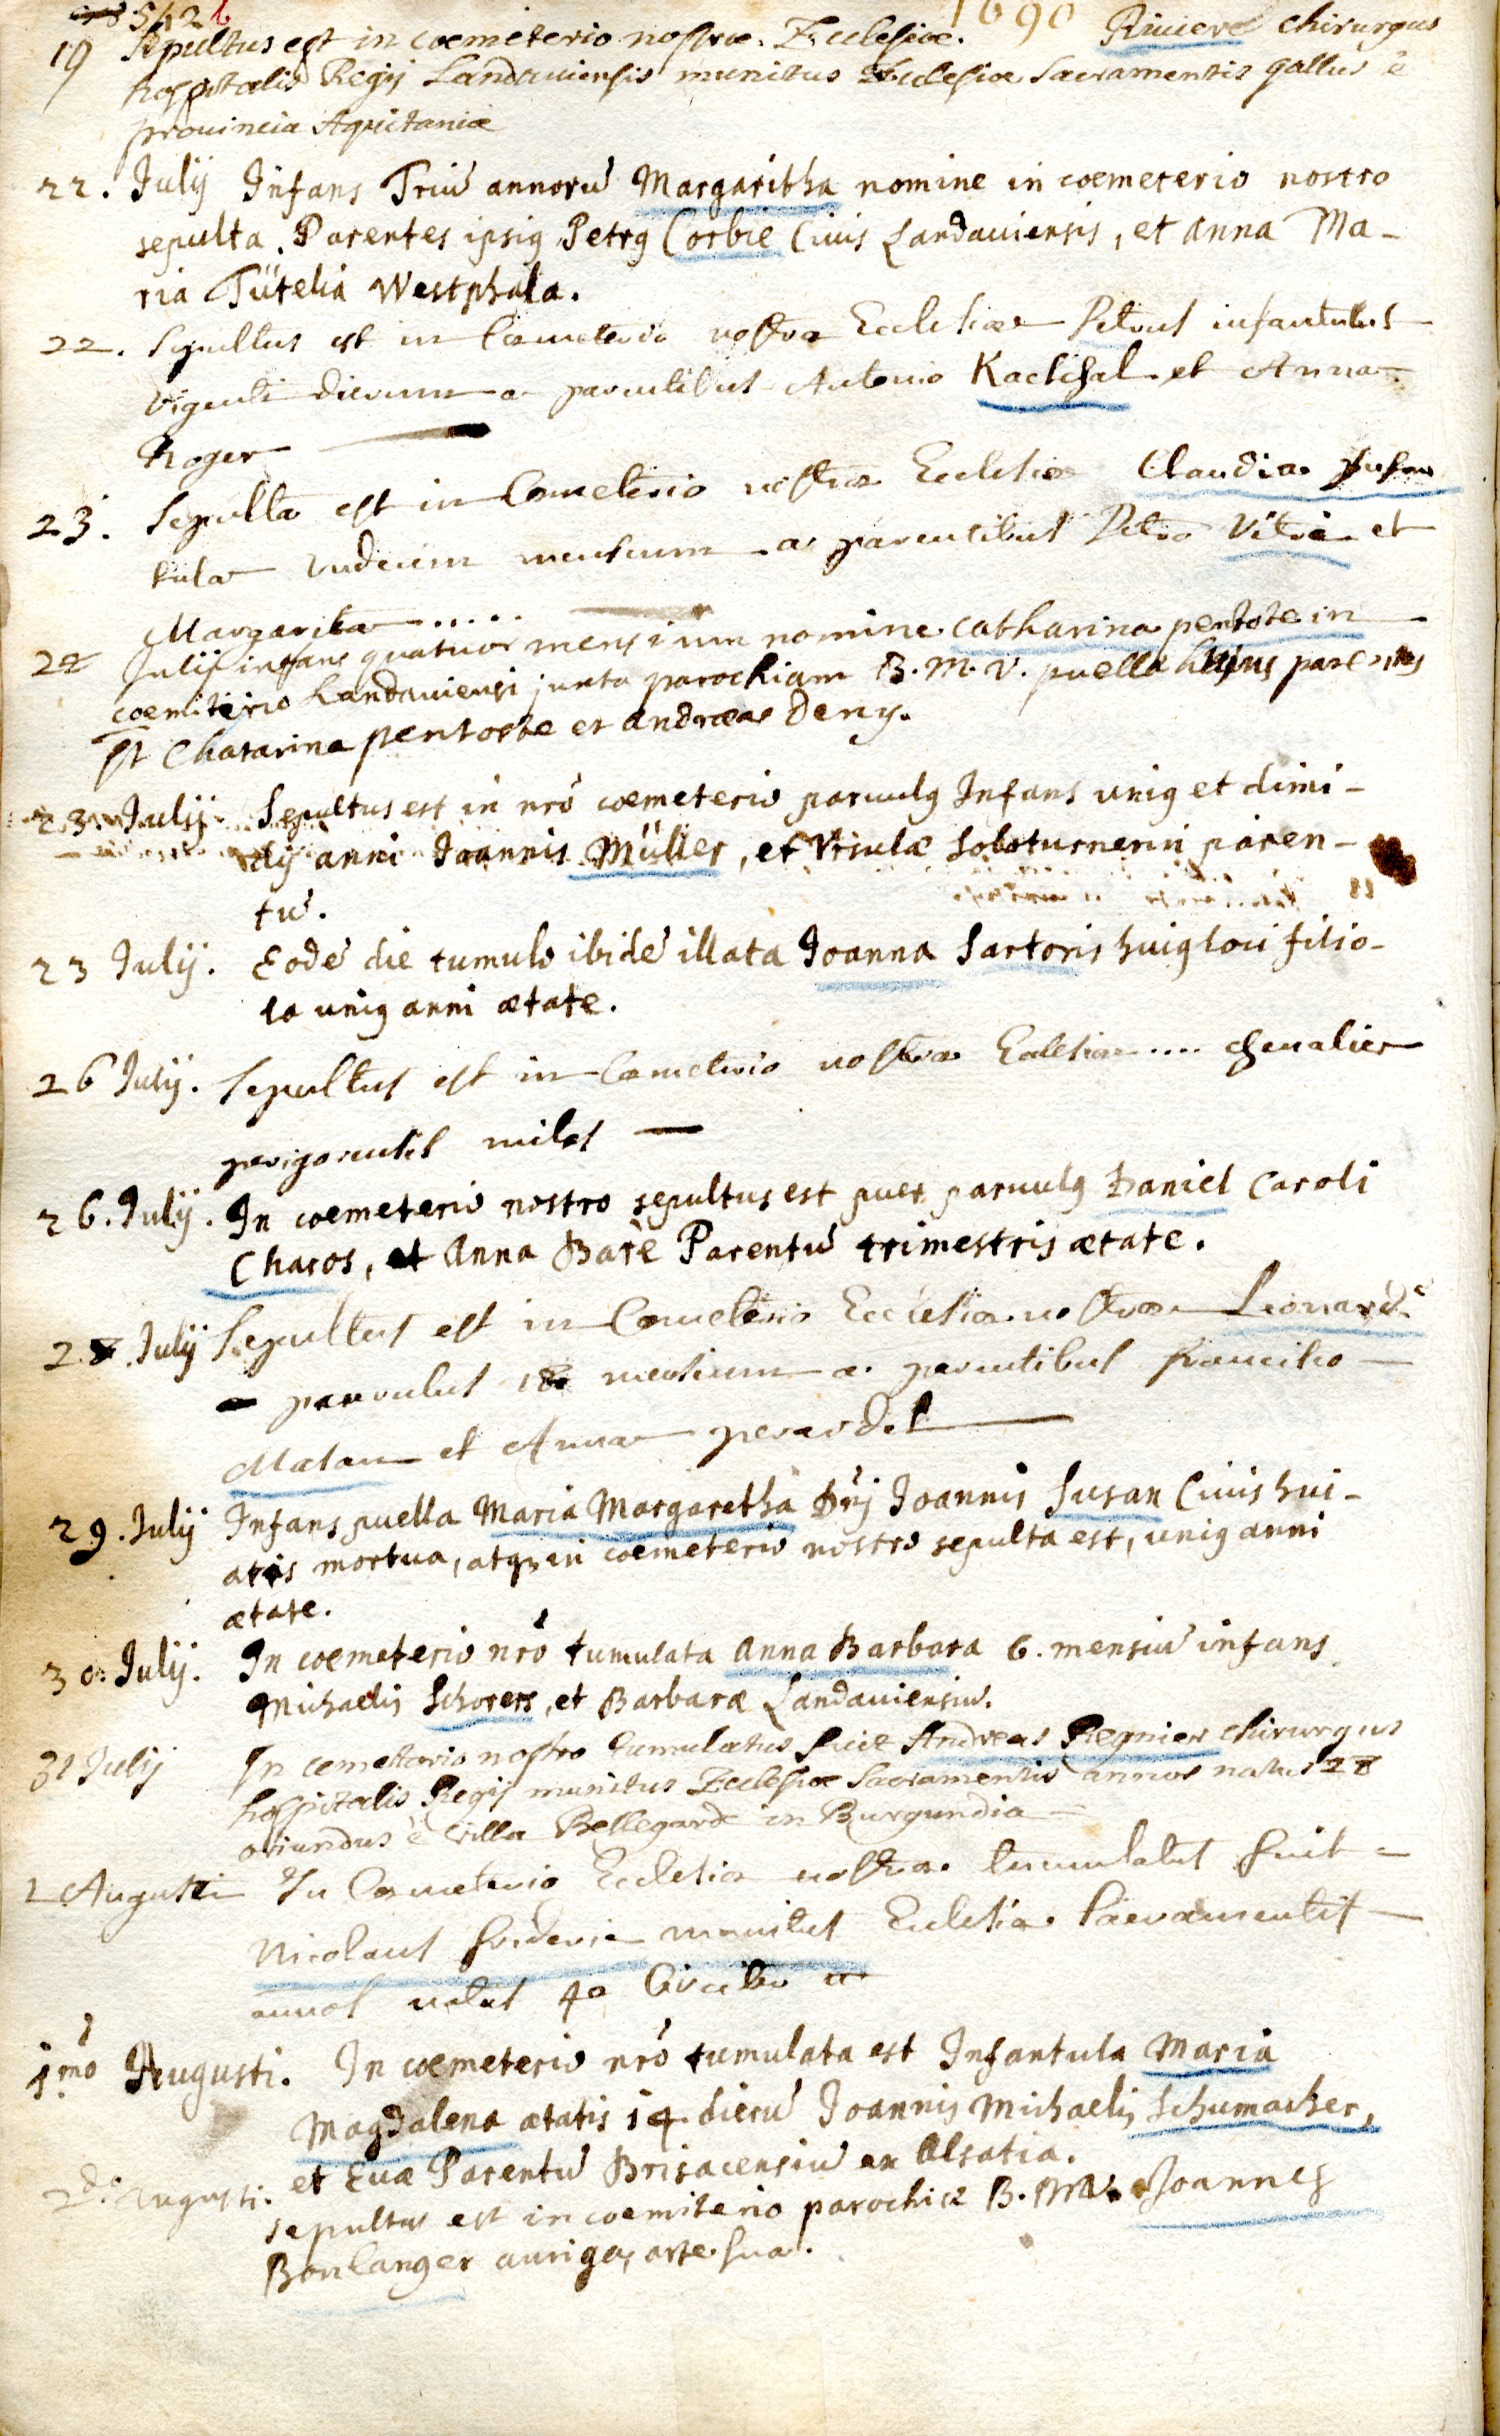 542
1690
19 Sepultus est in coemeterio nostrae Ecclesiae. Riviere chirurgus
hospitalis Regij Landaviensis munitus Ecclesiae Sacramentis gallus è
provincia Aquitaniae
22. Julij Infans Triũ annorũ Margaritha nomine in coemeterio nostro
sepulta. Parentes ipsig Petrg Corbie Civis Landaviensis, et Anna Ma-
ria Tütelia Westphala.
22. Sepultus est in Coemeterio nostrae Ecclesiae Petrus infantulus
viginti dierum a parentibus Antonio Kachsal et Anna
Roger
23. Sepulta est in Coemeterio nostrae Ecclesiae Claudia Infan
tula undecim mensium a parentibus Petro Vitrie et
Margarita .....
22 Julij infans quatuor mensium nomine catharina pentote in
coemiterio Landaviensi juxta parochiam B. M. V. puellae hujus parentes
st Chatarina pentoste et andreas Deny.
23. Julij. Sepultus est in nrõ coemeterio parvulg Infans unig et dimi-
dij anni Joannis Müller, et Ursulae Soloturnerin paren-
tũ.
23 Julij. Eodẽ die tumulo ibidẽ illata Joanna Sartoris huig loci filio-
la unig anni aetate.
26 Julij. Sepultus est in Coemeterio nostrae Ecclesiae .... chevalier
perigorensis miles
26. Julij. In coemeterio nostro sepultus est puer parvulg Daniel Caroli
Charos, et Anna Barè Parentũ trimestris aetate.
28. Julij Sepultus est in Coemeterio Ecclesiae nostrae Leonarde
parvulus 18 mensium a parentibus francisco
Matan et Anna perardel
29. Julij Infans puella Maria Margaretha Dñj Joannis Susan Civis hui-
atis mortua, atqz in coemeterio nostro sepulta est, unig anni
aetate.
30. Julij. In coemeterio nrõ tumulata Anna Barbara 6. mensiũ infans
Michaelis Schorers, et Barbarae Landaviensiũ.
31 Julij In cemeterio nostro tumulatus fuit Andreas Regnier chirurgus
hospitalis Regij munitus Ecclesiae Sacramentis annos natus 28
oriundus è villa Bellegarde in Burgundia
1 Augusti In Coemeterio Ecclesiae nostrae tumulatus fuit
Nicolaus friderie munitus Ecclesiae Sacramentis
annos natus 40 Circiter
1.mo Augusti. In coemeterio nrõ tumulata est Infantula Maria
Magdalena aetatis 14 dierũ Joannis Michaelis Schumacher,
et Evae Parentũ Brisacensiũ ex Alsatia.
2do Augusti. sepultus est in coemiterio parochiae B. M. V. Joannes
Boulanger auriga, arte sua.